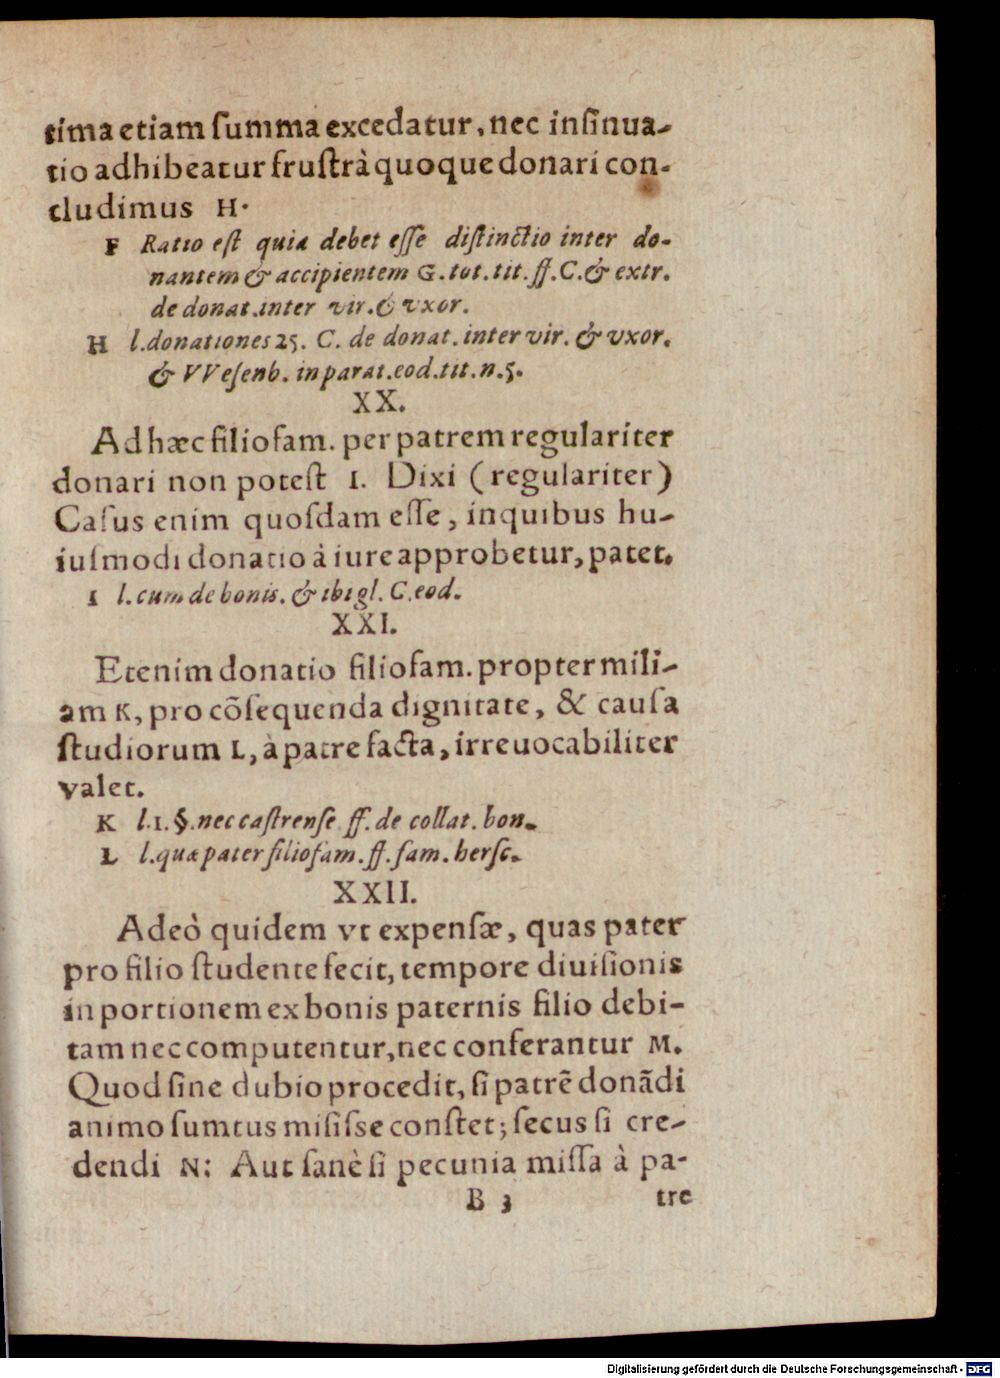 tima etiam ſumma excedatur, nec inſinua-
tio adhibeatur fruſtrà quoque donari con-
cludimus H.
F Ratio eſt quia debet eſſe diſtinctio inter do-
nantem & accipientem G. tot. tit. ff. C. & extr.
de donat. inter vir. & vxor.
H l. donationes 25. C. de donat. inter vir. & vxor.
& VVeſenb. in parat. eod. tit. n. 5.
XX.
Ad hæc filiofam. per patrem regulariter
donari non poteſt I. Dixi (regulariter)
Caſus enim quoſdam eſſe, in quibus hu-
iuſmodi donatio à iure approbetur, patet.
I l. cum de bonis. & ibi gl. C. eod.
XXI.
Etenim donatio filiofam. propter mili-
am K, pro cõſequenda dignitate, & cauſa
ſtudiorum L, à patre facta, irreuocabiliter
valet.
K l. 1. §. nec caſtrenſe ff. de collat. bon.
L l. quæ pater filiofam. ff. fam. herſc.
XXII.
Adeò quidem vt expenſæ, quas pater
pro filio ſtudente fecit, tempore diuiſionis
in portionem ex bonis paternis filio debi-
tam nec computentur, nec conferantur M.
Quod ſine dubio procedit, ſi patrẽ donãdi
animo ſumtus miſiſse conſtet; ſecus ſi cre-
dendi N: Aut ſanè ſi pecunia miſſa à pa-
B 3 tre
Digitalisierung gefördert durch die Deutsche Forschungsgemeinschaft - DFG